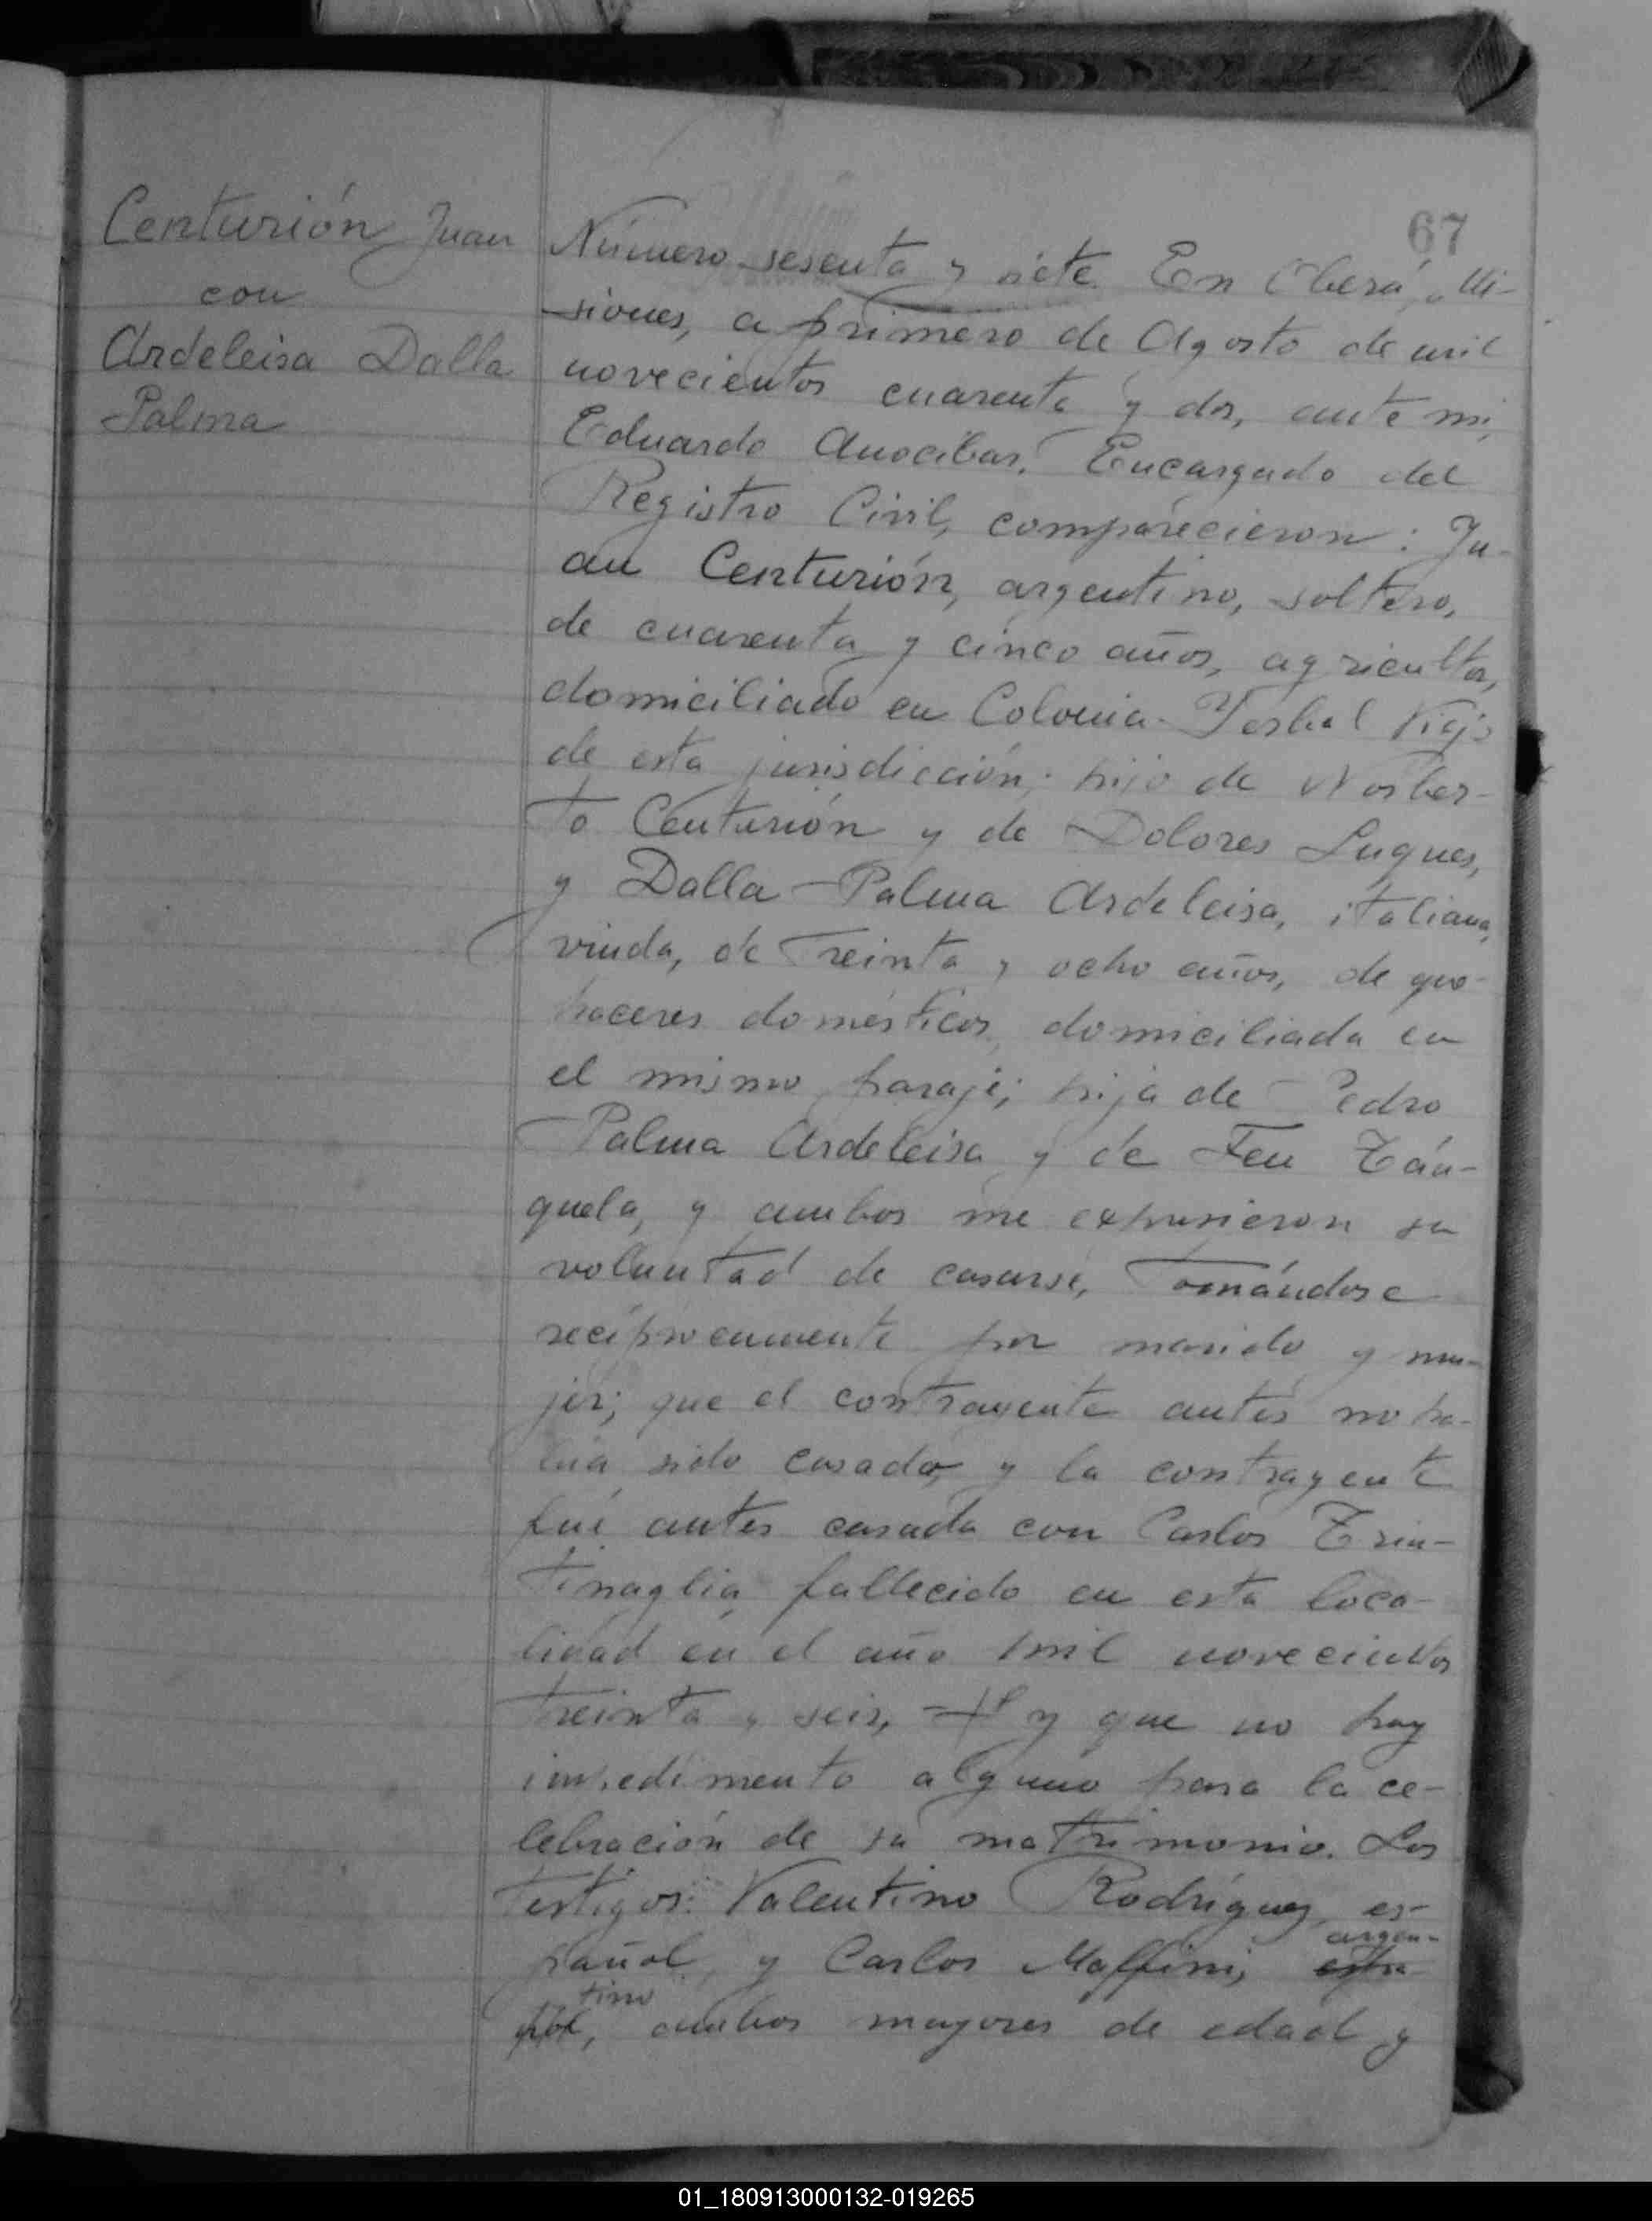 67
Centurión Juan
con
Ardeleisa Dalla
Palma
Número sesenta y siete En Oberá, Mi-
siones, a primero de Agosto de mil
novecientos cuarenta y dos, ante mi,
Eduardo Anocibar, Encargado del
Registro Civil, comparecieron: Ju-
an Centurión, argentino, soltero,
de cuarenta y cinco años, agricultor,
domiciliado en Colonia Yerbal Viejo
de esta jurisdicción; hijo de Norber-
to Centurión y de Dolores Luques,
y Dalla Palma Ardeleisa, italiana,
viuda, de treinta y ocho años, de que-
haceres domésticos, domiciliada en
el mismo paraje; hija de Pedro
Palma Ardeleisa y de Feu
quela, y ambos me expusieron su
voluntad de casarse, tomándose
recíprocamente por marido y mu-
jer; que el contrayente antes no ha-
bía sido casado, y la contrayente
fué antes casada con Carlos Trin-
tinaglia, fallecido en esta loca-
lidad en el año mil novecientos
treinta y seis, y que no hay
impedimento alguno para la ce-
lebración de su matrimonio. Los
testigos: Valentino Rodríguez, es-
pañol, y Carlos Maffini, argen-
tino, ambos mayores de edad y
01_180913000132-019265